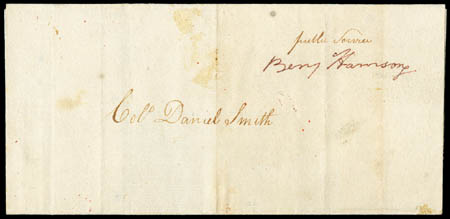 public Service
Benj Harrison
Colo. Daniel Smith